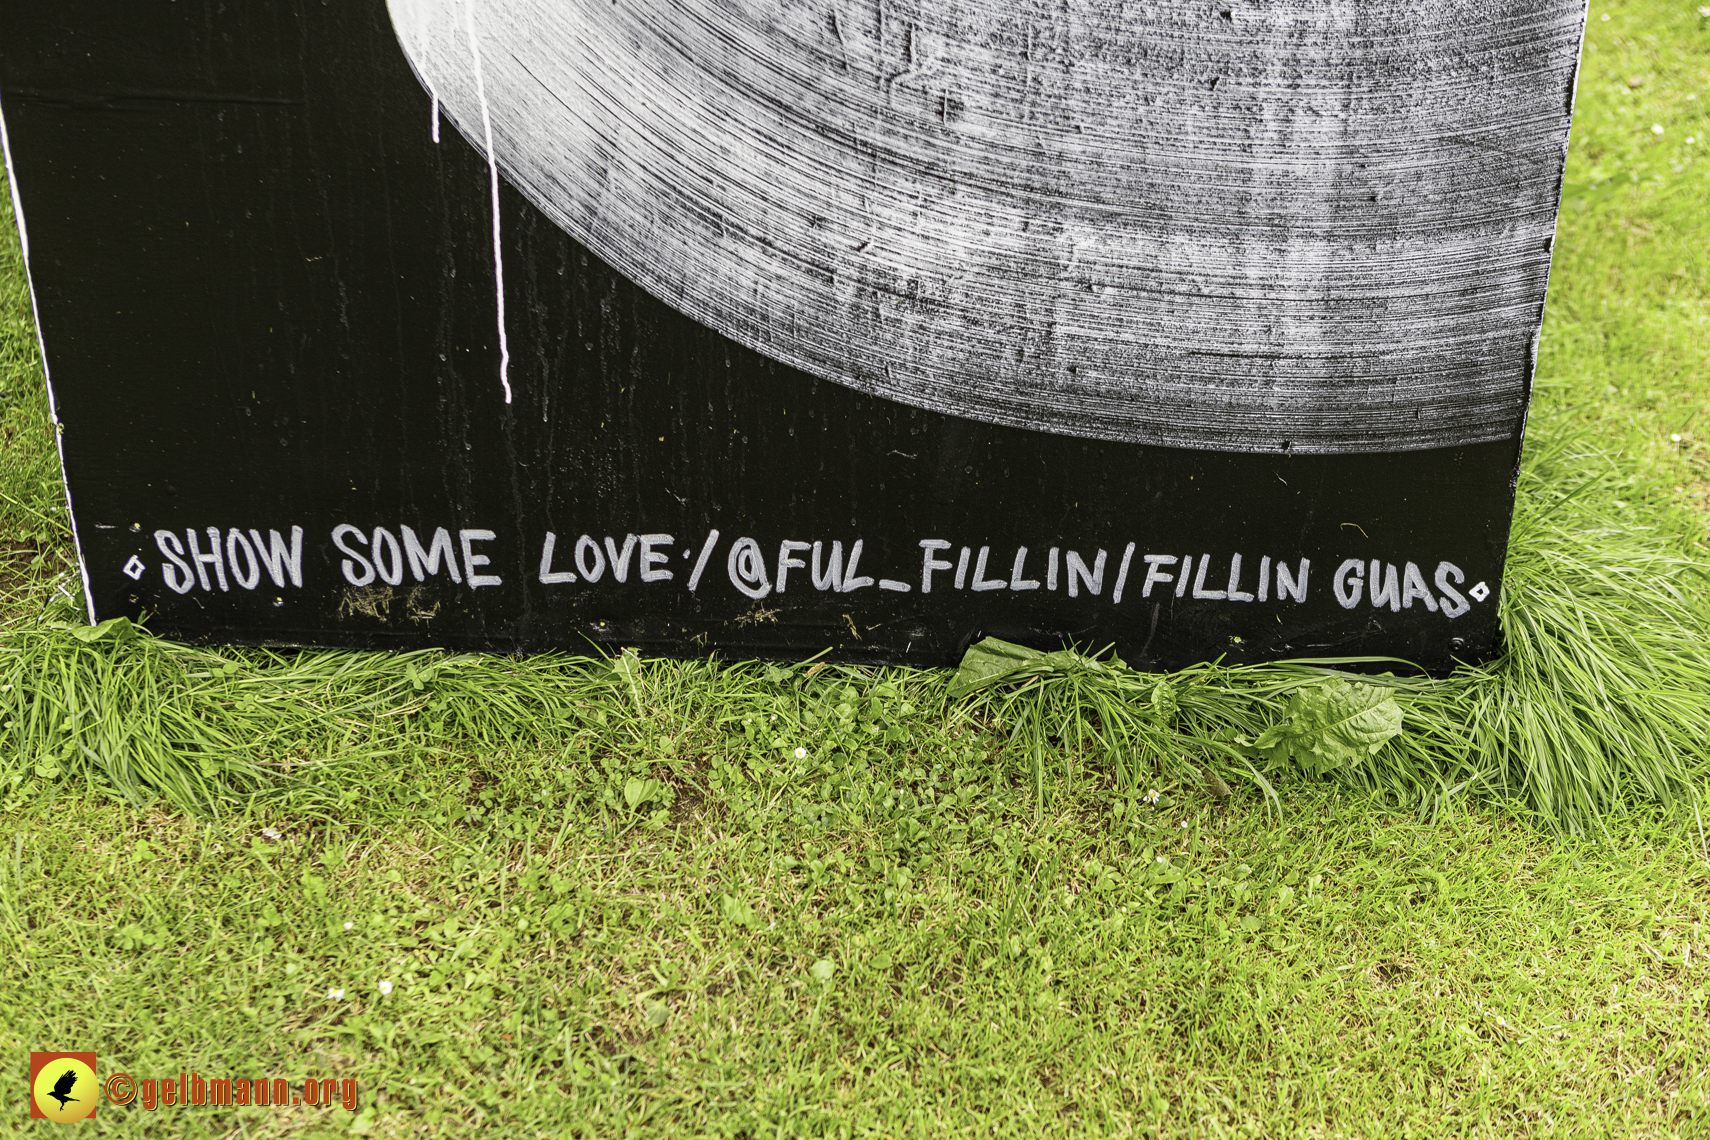 ◇ SHOW SOME LOVE ·/ @FUL_FILLIN / FILLIN GUAS ◇
©gelbmann.org